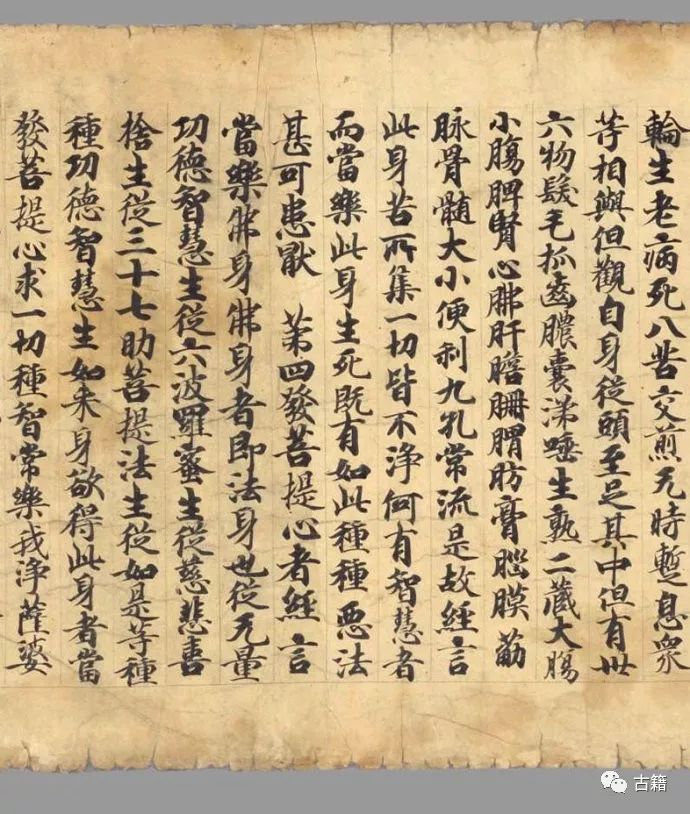 輪生老病死八苦交煎无時蹔息衆
等相與但觀自身從頭至足其中但有卅
六物髮毛抓齒膿囊涕唾生熟二藏大腸
小腸脾腎心肺肝膽胃肪膏腦膜筋
脉骨髓大小便利九孔常流是故經言
此身苦所集一切皆不淨何有智慧者
而當樂此身生死既有如此種種惡法
甚可患猒 第四發菩提心者經言
當樂佛身佛身者即法身也從无量
功德智慧生從六波羅蜜生從慈悲喜
捨生從三十七助菩提法生從如是等種
種功德智慧生如来身欲得此身者當
發菩提心求一切種智常樂我淨薩婆
古籍